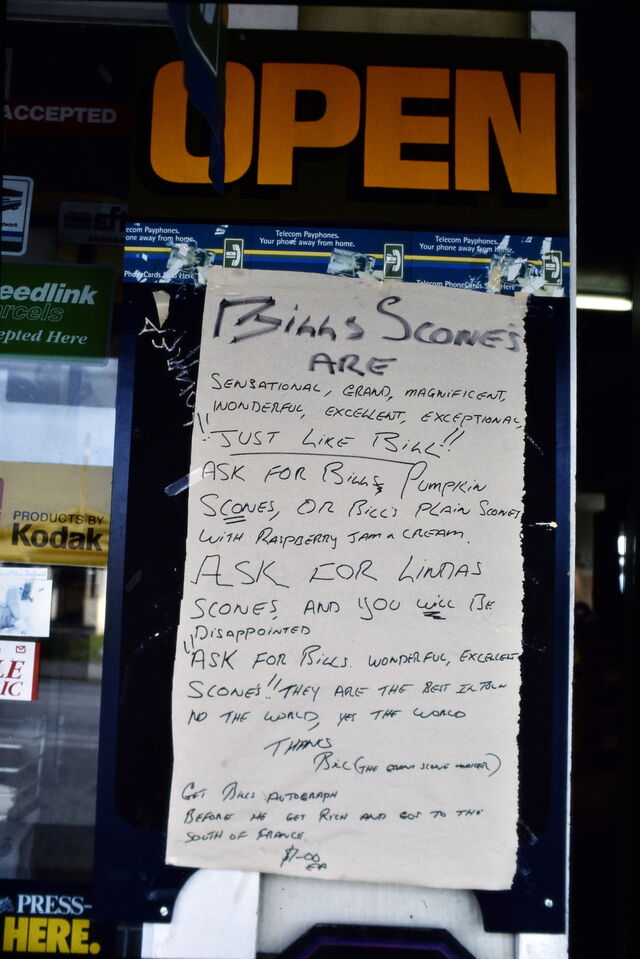 OPEN
ACCEPTED
Telecom Payphones.
one away from home.
Telecom Payphones.
Your phone away from home.
Telecom Payphones.
Your phone away from home.
Telecom PhoneCards
eedlink
arcels
epted Here
PRODUCTS BY
Kodak
PRESS-
HERE.
BILLS SCONE'S
ARE
SENSATIONAL, GRAND, MAGNIFICENT,
WONDERFUL, EXCELLENT, EXCEPTIONAL,
"JUST LIKE BILL"!!
ASK FOR BILLS PUMPKIN
SCONES, OR BILL'S PLAIN SCONES
WITH RASPBERRY JAM n CREAM.
ASK FOR LINDAS
SCONES, AND YOU WILL BE
DISAPPOINTED
"ASK FOR BILLS WONDERFUL, EXCELLENT
SCONES"!! THEY ARE THE BEST IN TOWN
NO THE WORLD, YES THE WORLD
THANKS
BILL (THE GRAND SCONE MAKER)
GET BILLS AUTOGRAPH
BEFORE HE GET RICH AND GOS TO THE
SOUTH OF FRANCE.
$1-00
EA